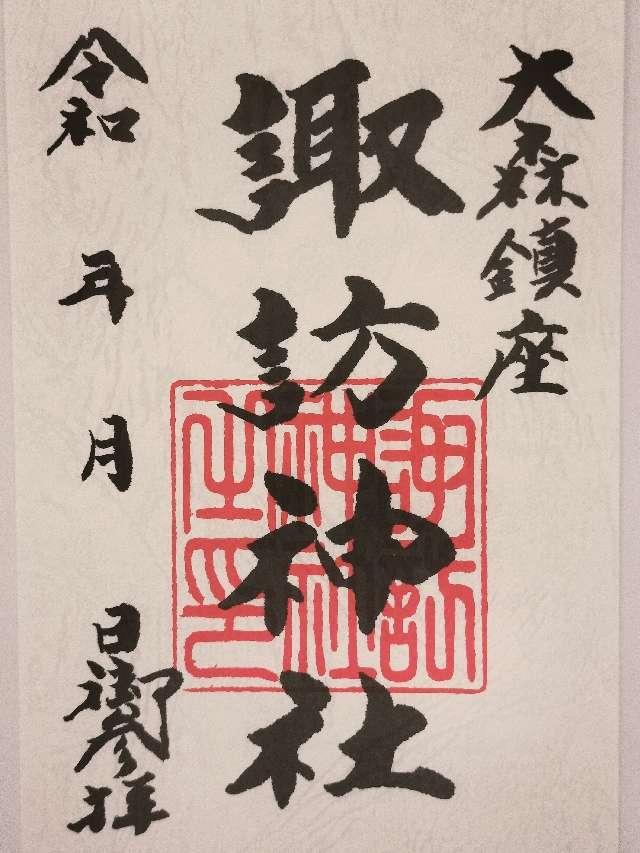 大森鎮座
諏訪神社
諏訪
神社
之印
令和 年 月 日御参拝